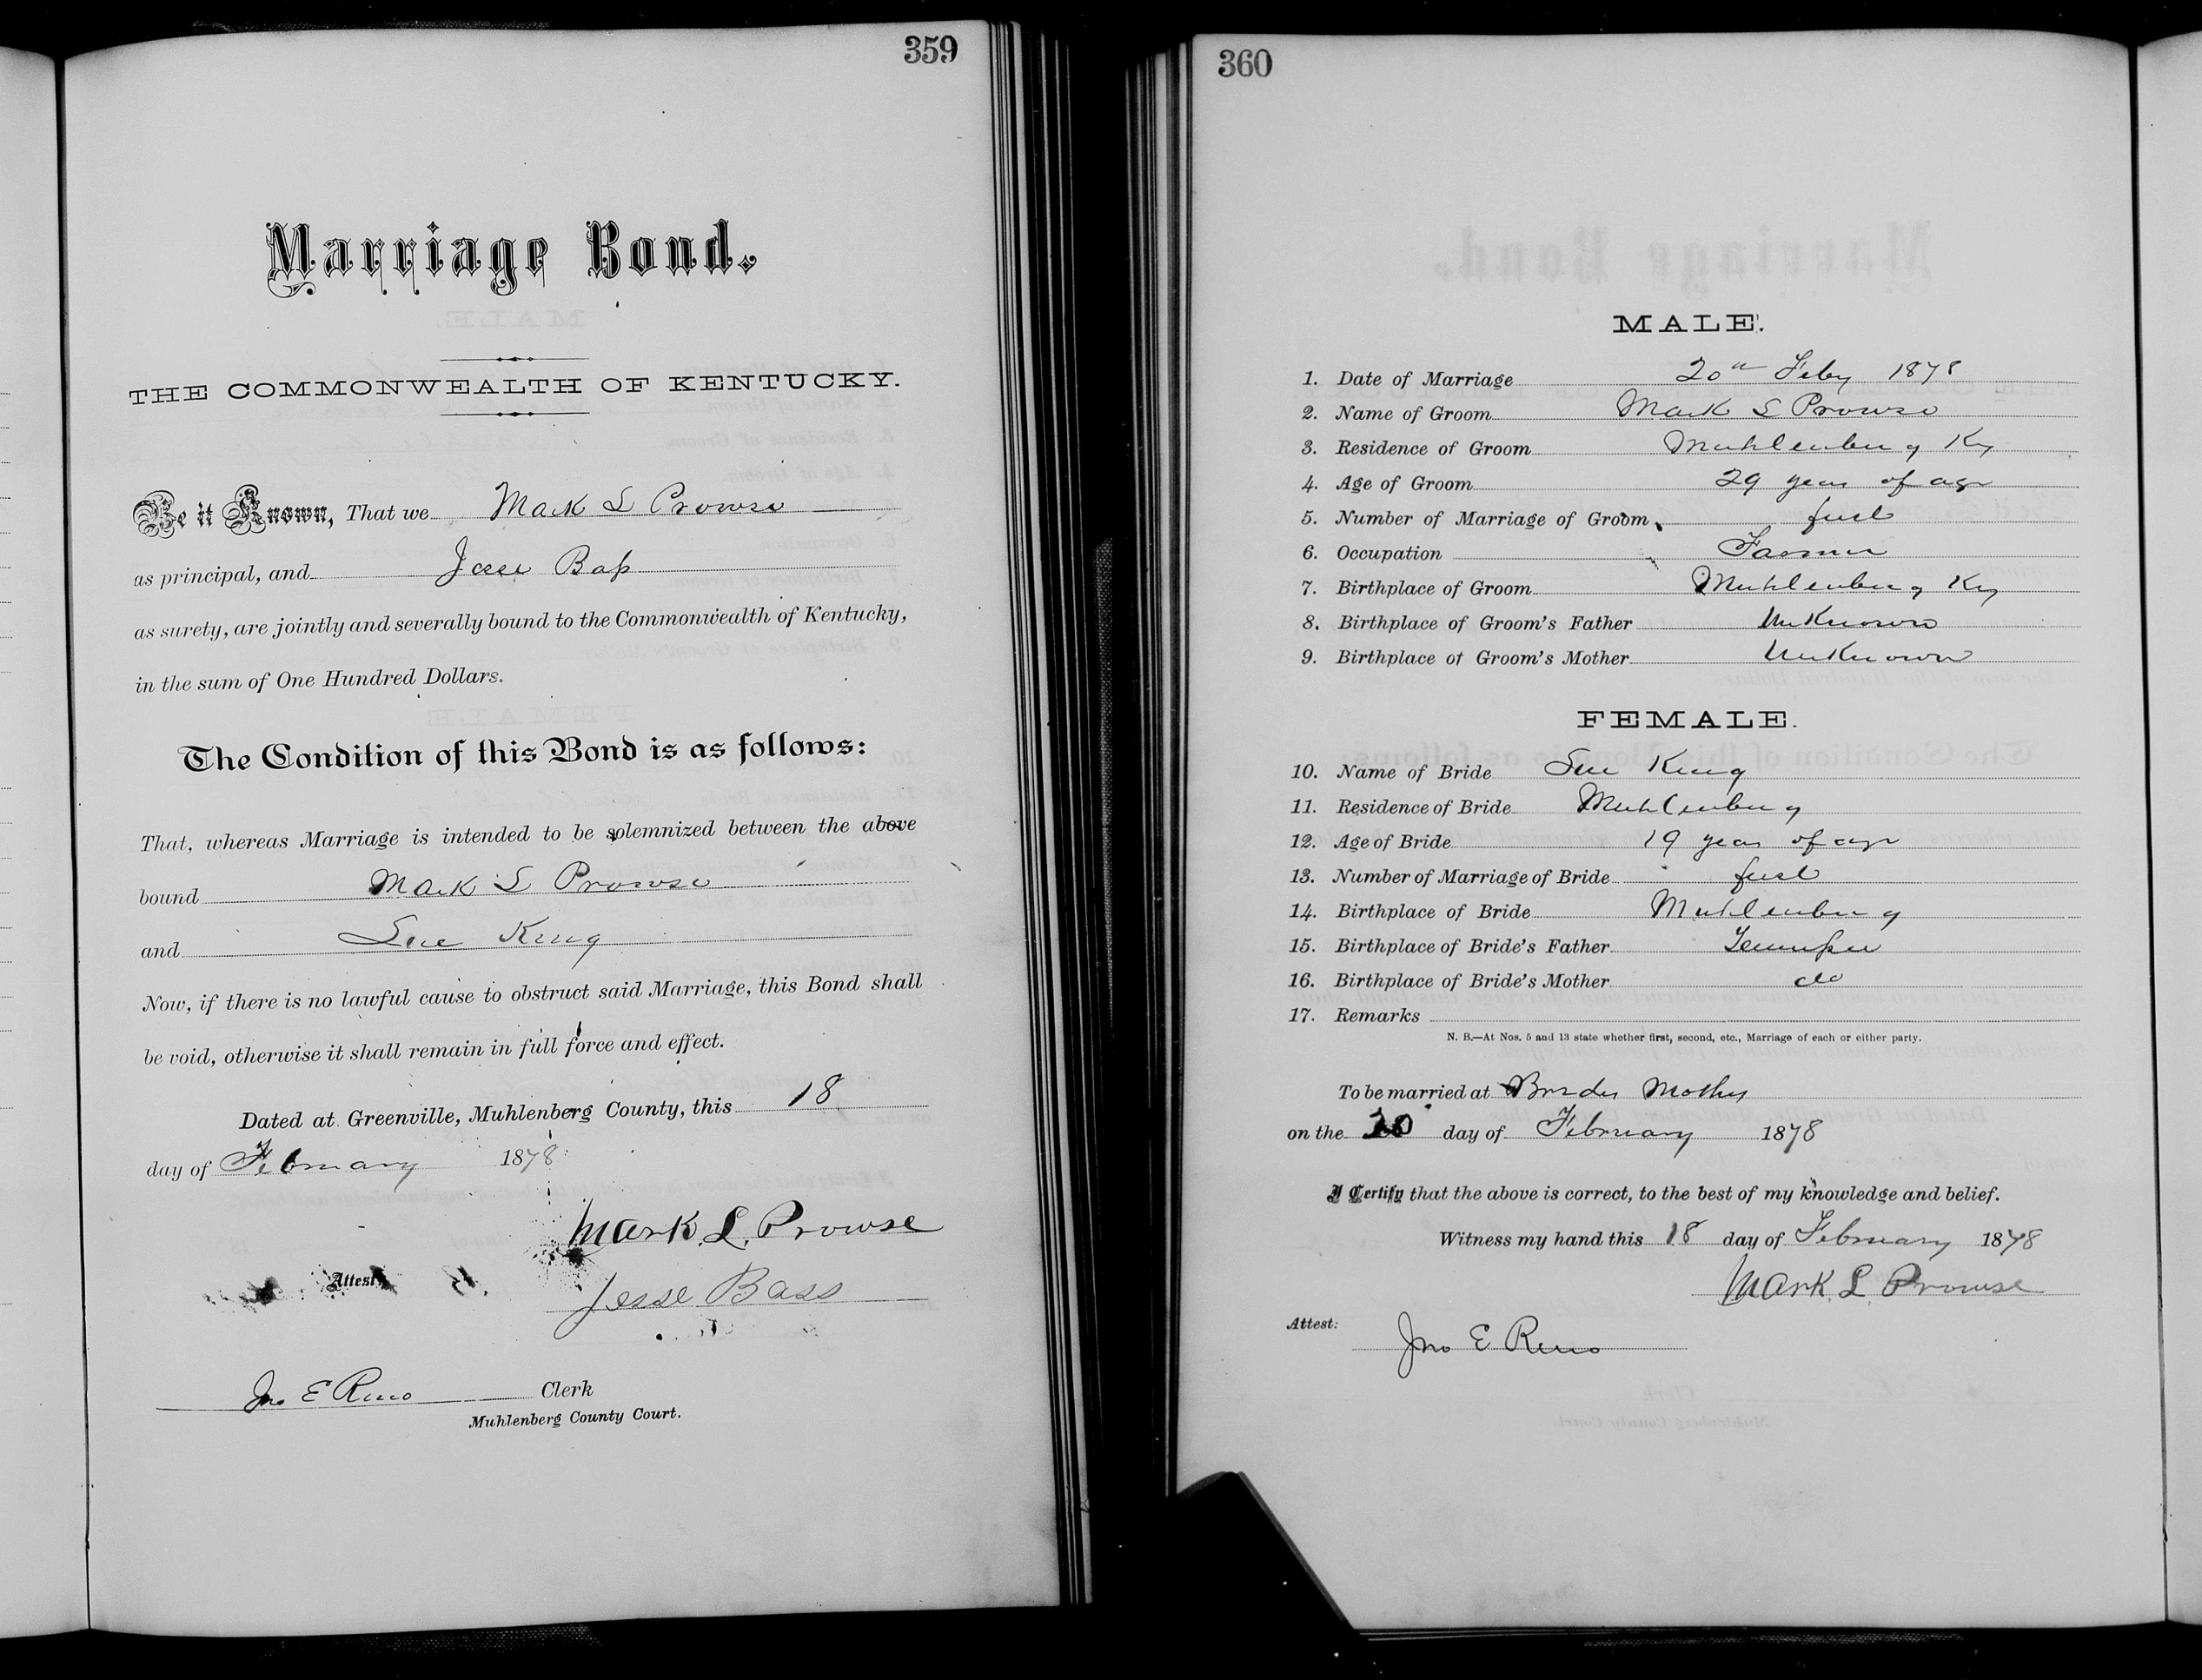 359
Marriage Bond.
THE COMMONWEALTH OF KENTUCKY.
Be it Known, That we Mark L Prowse
as principal, and Jesse Bass
as surety, are jointly and severally bound to the Commonwealth of Kentucky,
in the sum of One Hundred Dollars.
The Condition of this Bond is as follows:
That, whereas Marriage is intended to be solemnized between the above
bound Mark L Prowse
and Sue King
Now, if there is no lawful cause to obstruct said Marriage, this Bond shall
be void, otherwise it shall remain in full force and effect.
Dated at Greenville, Muhlenberg County, this 18
day of February 1878
Mark L. Prowse
Attest,
Jesse Bass
Jno E Reno Clerk
Muhlenberg County Court.
360
MALE.
1. Date of Marriage 20th Feby 1878
2. Name of Groom Mark L Prowse
3. Residence of Groom Muhlenburg Ky
4. Age of Groom 29 years of age
5. Number of Marriage of Groom first
6. Occupation Farmer
7. Birthplace of Groom Muhlenburg Ky
8. Birthplace of Groom's Father UnKnown
9. Birthplace of Groom's Mother UnKnown
FEMALE.
10. Name of Bride Sue King
11. Residence of Bride Muhlenburg
12. Age of Bride 19 years of age
13. Number of Marriage of Bride first
14. Birthplace of Bride Muhlenburg
15. Birthplace of Bride's Father Tennessee
16. Birthplace of Bride's Mother do
17. Remarks
N. B.—At Nos. 5 and 13 state whether first, second, etc., Marriage of each or either party.
To be married at Brides Mothers
on the 20 day of February 1878
I Certify that the above is correct, to the best of my knowledge and belief.
Witness my hand this 18 day of February 1878
Mark L. Prowse
Attest:
Jno E Reno